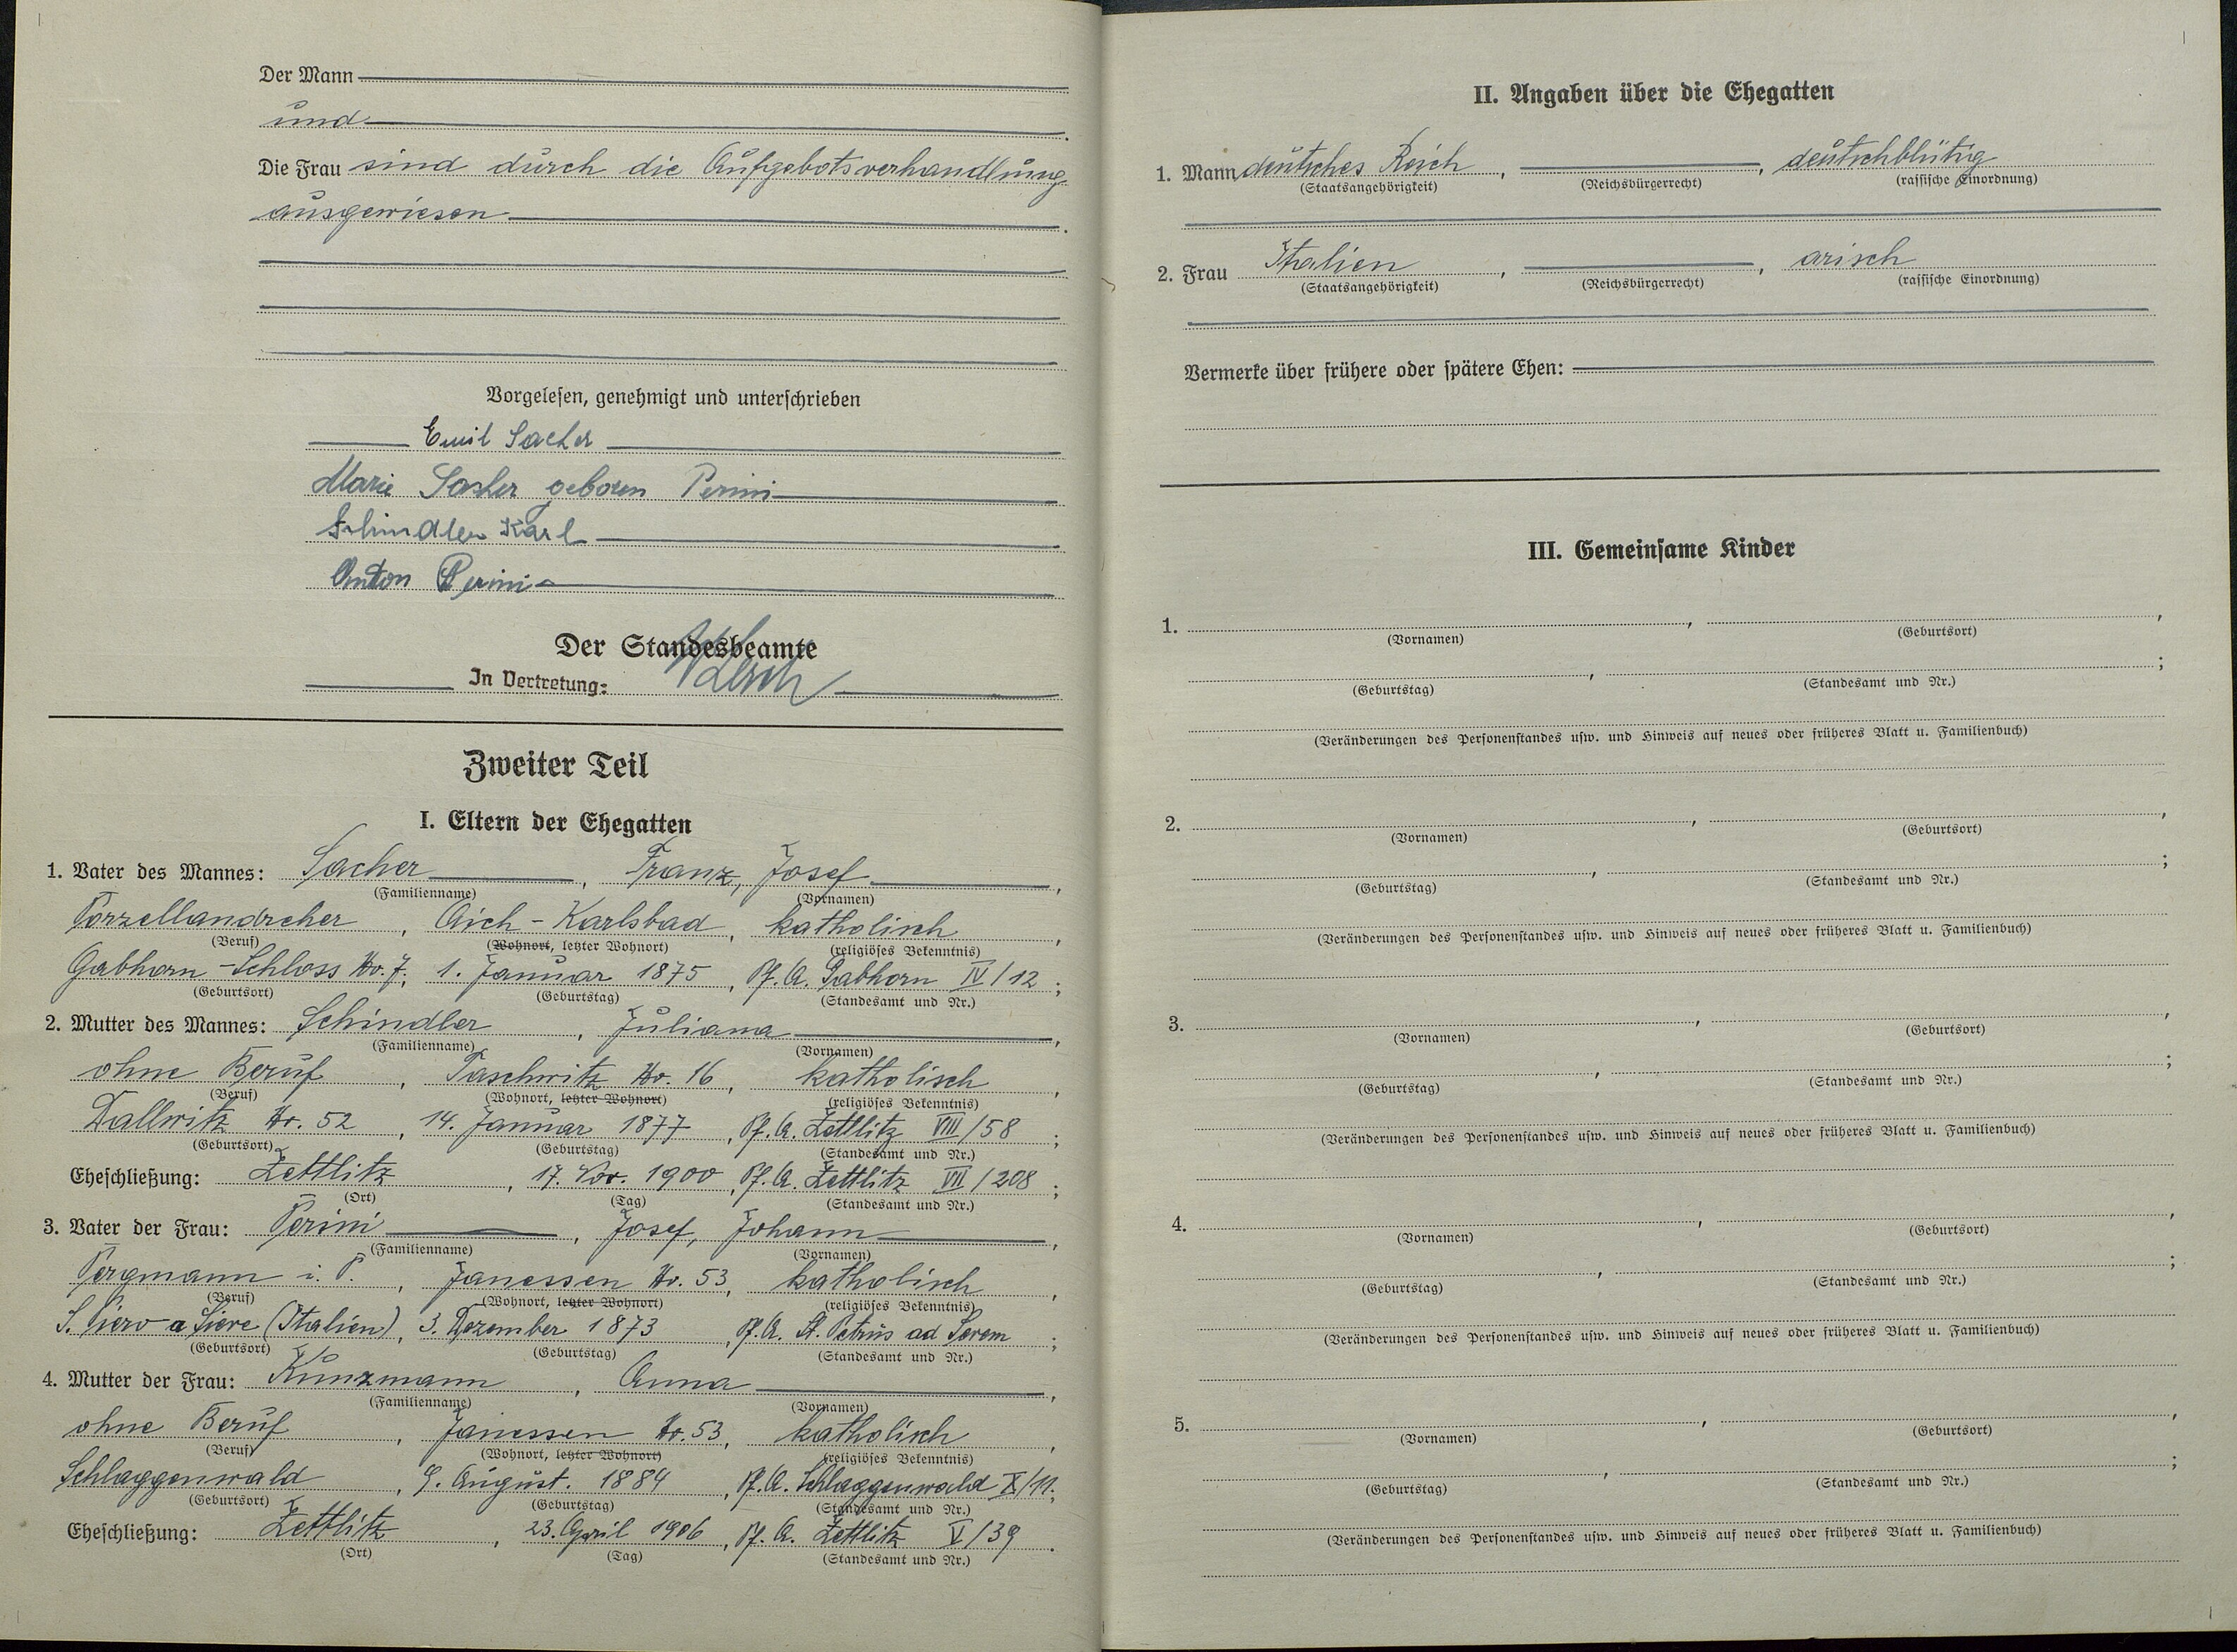 Der Mann
und
Die Frau sind durch die Aufgebotsverhandlung
ausgewiesen
Vorgelesen, genehmigt und unterschrieben
Emil Sacher
Marie Sacher geboren Perini
Schindler Karl
Anton Perini
Der Standesbeamte
In Vertretung:
Zweiter Teil
I. Eltern der Ehegatten
1. Vater des Mannes: Sacher, Franz, Josef,
(Familienname) (Vornamen)
Porzellandreher, Aich-Karlsbad, katholisch,
(Beruf) (Wohnort, letzter Wohnort) (religiöses Bekenntnis)
Gabhorn-Schloss Nr. 7, 1. Januar 1875, Pf. A. Gabhorn IV/12;
(Geburtsort) (Geburtstag) (Standesamt und Nr.)
2. Mutter des Mannes: Schindler, Juliana,
(Familienname) (Vornamen)
ohne Beruf, Taschwitz Nr. 16, katholisch,
(Beruf) (Wohnort, letzter Wohnort) (religiöses Bekenntnis)
Dallwitz Nr. 52, 14. Januar 1877, Pf. A. Zettlitz VIII/58;
(Geburtsort) (Geburtstag) (Standesamt und Nr.)
Eheschließung: Zettlitz, 17. Nov. 1900, Pf. A. Zettlitz VII/208;
(Ort) (Tag) (Standesamt und Nr.)
3. Vater der Frau: Perini, Josef, Johann,
(Familienname) (Vornamen)
Bergmann i. P., Janessen Nr. 53, katholisch,
(Beruf) (Wohnort, letzter Wohnort) (religiöses Bekenntnis)
S. Piero a Sieve (Italien), 3. Dezember 1873, Pf. A. St. Petrus ad;
(Geburtsort) (Geburtstag) (Standesamt und Nr.)
4. Mutter der Frau: Kunzmann, Anna,
(Familienname) (Vornamen)
ohne Beruf, Janessen Nr. 53, katholisch,
(Beruf) (Wohnort, letzter Wohnort) (religiöses Bekenntnis)
Schlaggenwald, 9. August. 1884, Pf. A. Schlaggenwald X/11;
(Geburtsort) (Geburtstag) (Standesamt und Nr.)
Eheschließung: Zettlitz, 23. April 1906, Pf. A. Zettlitz V/39.
(Ort) (Tag) (Standesamt und Nr.)
II. Angaben über die Ehegatten
1. Mann deutsches Reich, , deutschblütig
(Staatsangehörigkeit) (Reichsbürgerrecht) (rassische Einordnung)
2. Frau Italien, , arisch
(Staatsangehörigkeit) (Reichsbürgerrecht) (rassische Einordnung)
Vermerke über frühere oder spätere Ehen:
III. Gemeinsame Kinder
1. , ,
(Vornamen) (Geburtsort)
, ;
(Geburtstag) (Standesamt und Nr.)
(Veränderungen des Personenstandes usw. und Hinweis auf neues oder früheres Blatt u. Familienbuch)
2. , ,
(Vornamen) (Geburtsort)
, ;
(Geburtstag) (Standesamt und Nr.)
(Veränderungen des Personenstandes usw. und Hinweis auf neues oder früheres Blatt u. Familienbuch)
3. , ,
(Vornamen) (Geburtsort)
, ;
(Geburtstag) (Standesamt und Nr.)
(Veränderungen des Personenstandes usw. und Hinweis auf neues oder früheres Blatt u. Familienbuch)
4. , ,
(Vornamen) (Geburtsort)
, ;
(Geburtstag) (Standesamt und Nr.)
(Veränderungen des Personenstandes usw. und Hinweis auf neues oder früheres Blatt u. Familienbuch)
5. , ,
(Vornamen) (Geburtsort)
, ;
(Geburtstag) (Standesamt und Nr.)
(Veränderungen des Personenstandes usw. und Hinweis auf neues oder früheres Blatt u. Familienbuch)